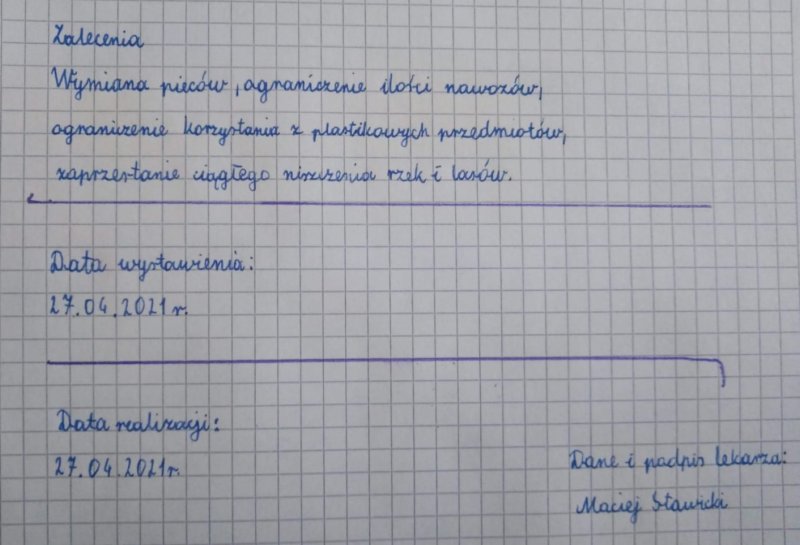 Zalecenia
Wymiana pieców, ograniczenie ilości nawozów,
ograniczenie korzystania z plastikowych przedmiotów,
zaprzestanie ciągłego niszczenia rzek i lasów.
Data wystawienia:
27.04.2021r.
Data realizacji:
27.04.2021r.
Dane i podpis lekarza:
Maciej Sławicki